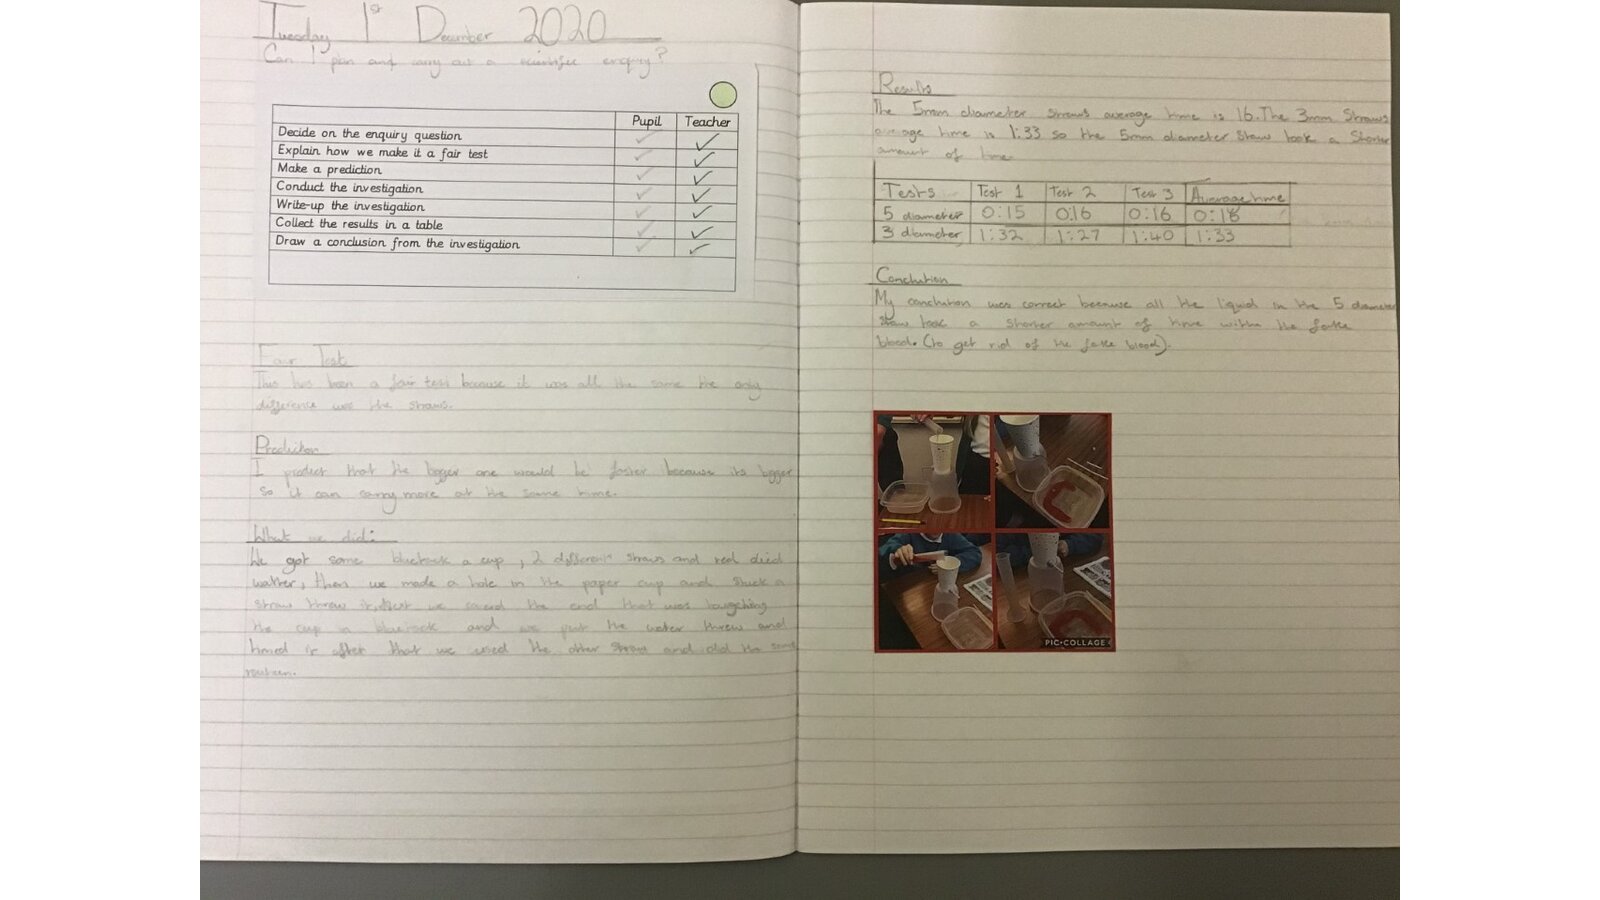 Tuesday 1st December 2020
Can I plan and carry out a scientific enquiry?
Pupil Teacher
Decide on the enquiry question
Explain how we make it a fair test
Make a prediction
Conduct the investigation
Write-up the investigation
Collect the results in a table
Draw a conclusion from the investigation
Fair Test
This has been a fair test because it was all the same the only
difference was the straws.
Prediction
I predict that the bigger one would be faster because its bigger
so it can carry more at the same time.
What we did:
We got some bluetack a cup, 2 different straws and red died
watter, then we made a hole in the paper cup and stuck a
straw threw it, we the end that was
the cup in bluetack and we put the water threw and
timed it after that we used the other straw and did the same
Results
The 5mm diameter straws average time is 16. The 3mm Straws
average time is 1:33 so the 5mm diameter straw took a shorter
amount of time
Tests Test 1 Test 2 Test 3 Average time
5 diameter 0:15 0:16 0:16 0:16
3 diameter 1:32 1:27 1:40 1:33
Conclution
My conclution was correct because all the liquid in the 5 diameter
straw took a shorter amount of time withe the fake
blood. (to get rid of the fake blood).
PIC•COLLAGE